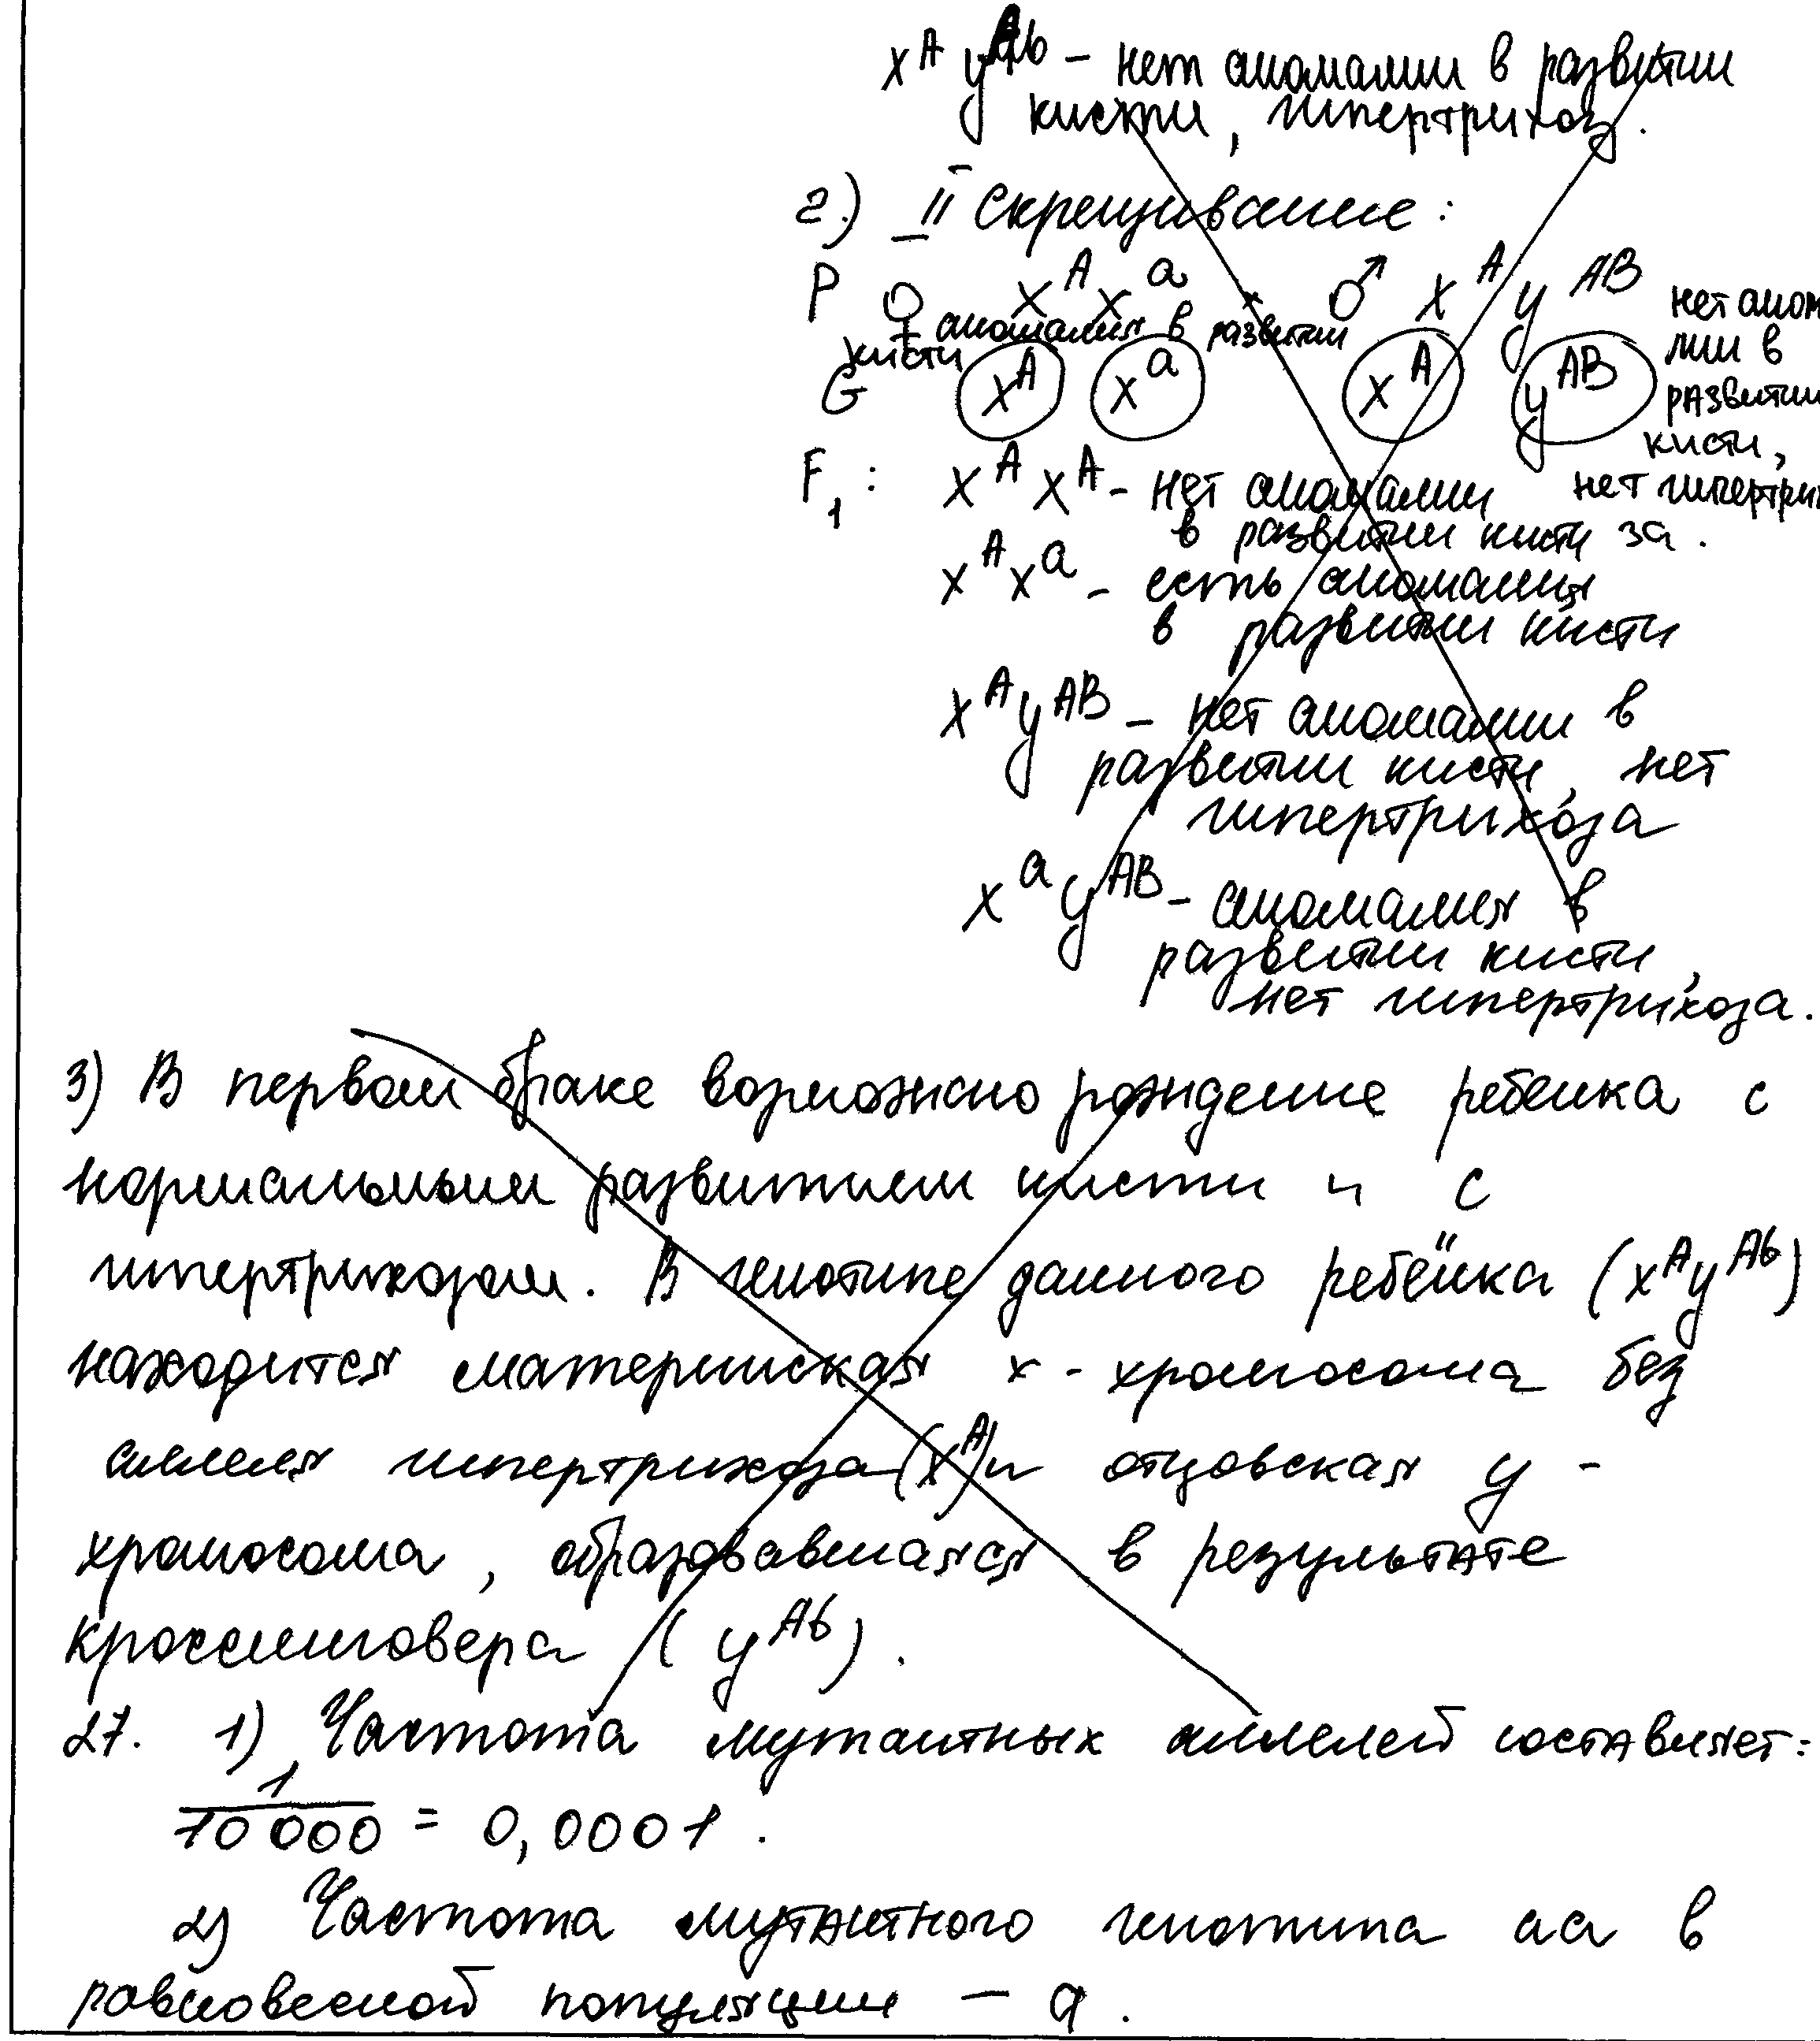 x^A y^Ab – нет аномалии в развитии
кисти, гипертрихоз.
2.) II скрещивание:
P ♀ x^A x^a × ♂ x^A y^AB нет анома
аномалия в развитии
кисти
лии в
G x^A x^a x^A y^AB развитии
кисти,
F1: x^A x^A – нет аномалии нет гипертрихо
в развитии кисти за.
x^A x^a – есть аномалия
в развитии кисти
x^A y^AB – нет аномалии в
развитии кисти, нет
гипертрихоза
x^a y^AB – аномалия в
развитии кисти,
нет гипертрихоза.
3) В первом браке возможно рождение ребенка с
нормальным развитием кисти и с
гипертрихозом. В генотипе данного ребёнка (x^A y^Ab)
находится материнская x - хромосома без
аллеля гипертрихоза (x^A) и отцовская y -
хромосома, образовавшаяся в результате
кроссинговера (y^Ab).
27. 1) Частота мутантных аллелей составляет:
1/10 000 = 0,0001.
2) Частота мутантного генотипа aa в
равновесной популяции – q.